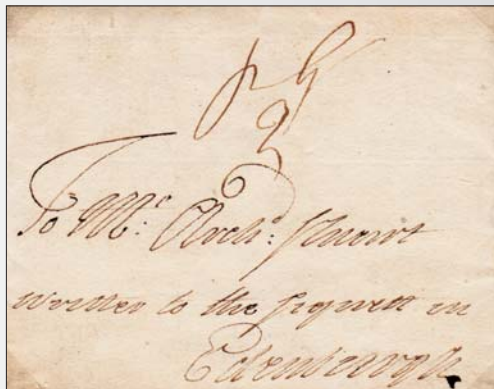 3
To Mr: Archd: Stuart
writter to the Signett in
Edenburgh